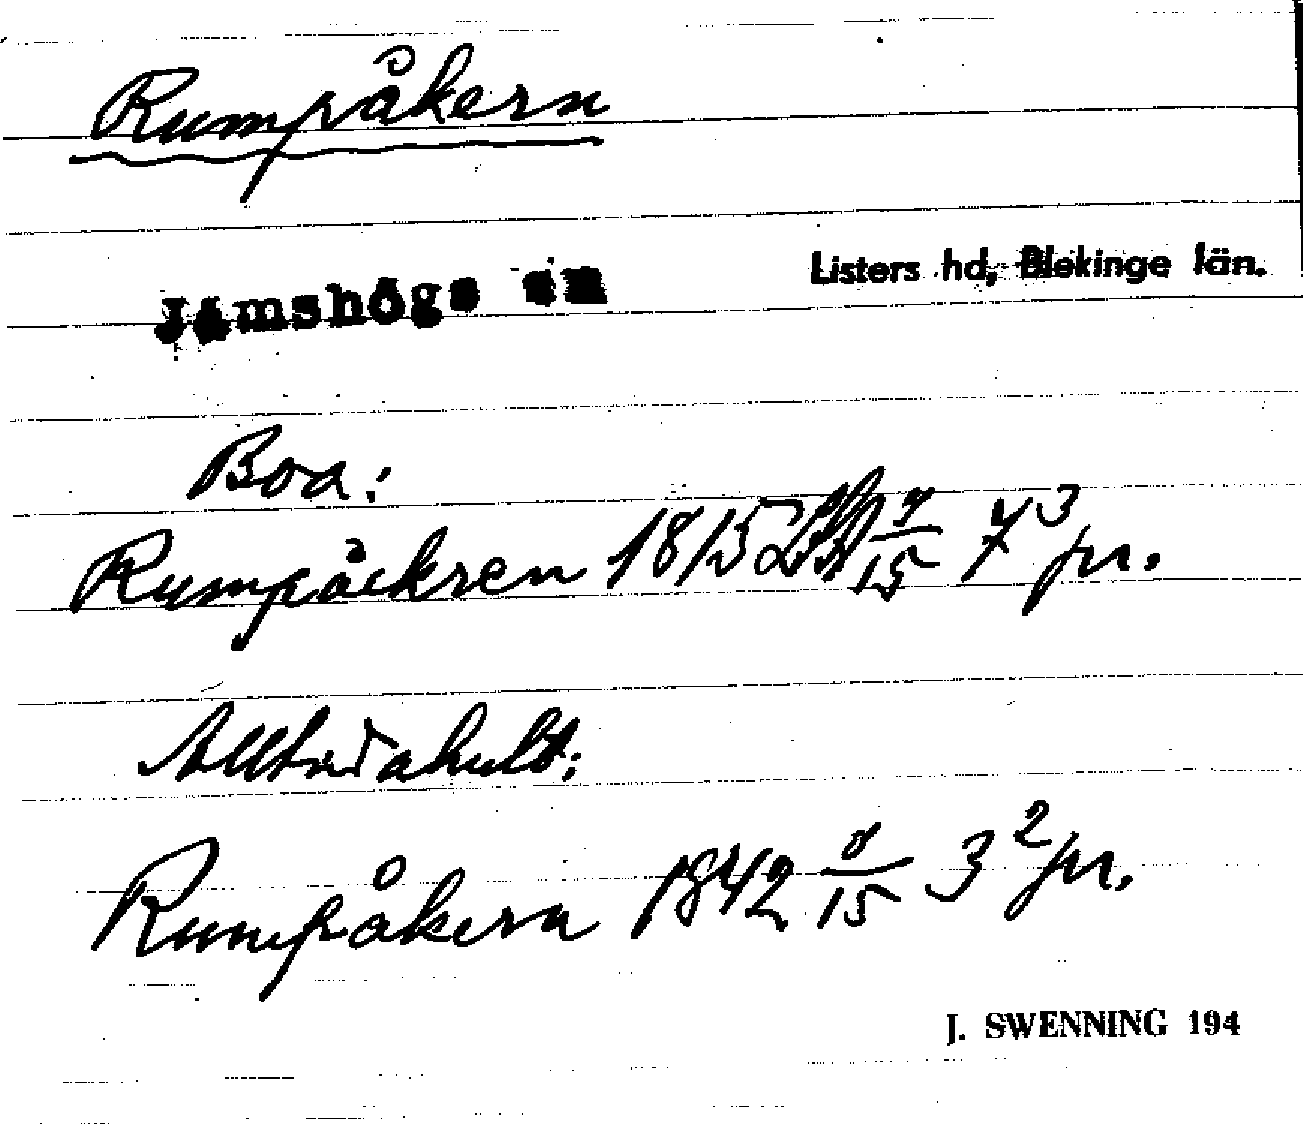 Rumpåkern
Jämshögs sn
Listers hd, Blekinge län.
Boa:
Rumpåckren 1815 7/15 7³ pr.
Rumpåkern 1842 8/15 3² pr.
J. SWENNING 194